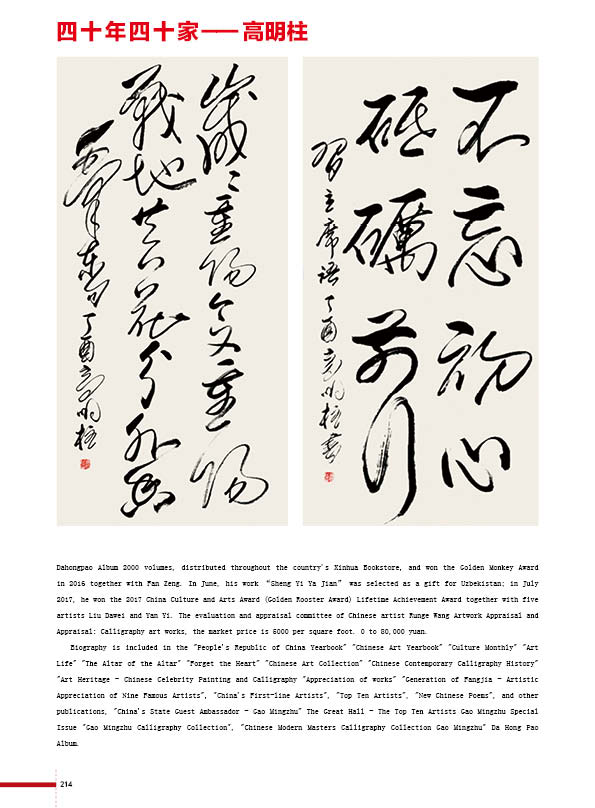 四十年四十家——高明柱
歲〻重陽今又重陽
戰地黄花分外香
毛澤東句丁酉高明柱
不忘初心
砥礪前行
習主席語丁酉高明柱書
Dahongpao Album 2000 volumes, distributed throughout the country's Xinhua Bookstore, and won the Golden Monkey Award
in 2016 together with Fan Zeng. In June, his work “Sheng Yi Ya Jian” was selected as a gift for Uzbekistan; in July
2017, he won the 2017 China Culture and Arts Award (Golden Rooster Award) Lifetime Achievement Award together with five
artists Liu Dawei and Yan Yi. The evaluation and appraisal committee of Chinese artist Runge Wang Artwork Appraisal and
Appraisal: Calligraphy art works, the market price is 6000 per square foot. 0 to 80,000 yuan.
Biography is included in the "People's Republic of China Yearbook" "Chinese Art Yearbook" "Culture Monthly" "Art
Life" "The Altar of the Altar" "Forget the Heart" "Chinese Art Collection" "Chinese Contemporary Calligraphy History"
"Art Heritage - Chinese Celebrity Painting and Calligraphy "Appreciation of works" "Generation of Fangjia - Artistic
Appreciation of Nine Famous Artists", "China's First-line Artists", "Top Ten Artists", "New Chinese Poems", and other
publications, "China's State Guest Ambassador - Gao Mingzhu" The Great Hall - The Top Ten Artists Gao Mingzhu Special
Issue "Gao Mingzhu Calligraphy Collection", "Chinese Modern Masters Calligraphy Collection Gao Mingzhu" Da Hong Pao
Album.
214